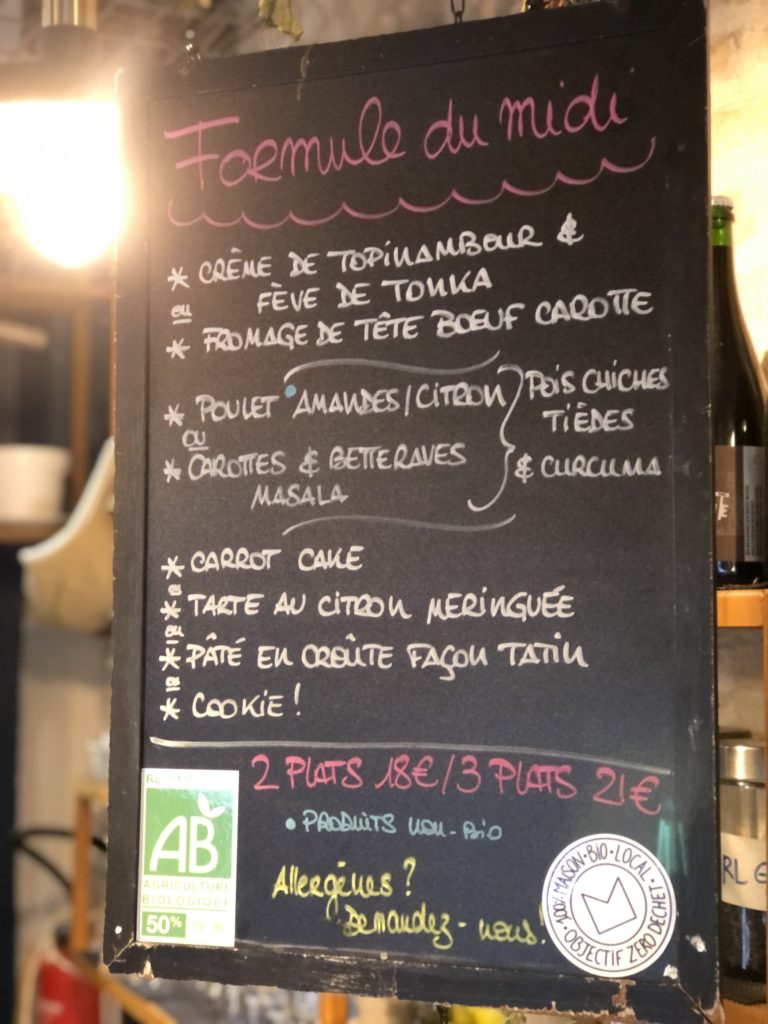 Formule du midi
* CRÈME DE TOPINAMBOUR &
FÈVE DE TONKA
ou
* FROMAGE DE TÊTE BŒUF CAROTTE
* POULET •AMANDES/CITRON
ou
* CAROTTES & BETTERAVES
MASALA
POIS CHICHES
TIÈDES
& CURCUMA
* CARROT CAKE
ou
* TARTE AU CITRON MERINGUÉE
ou
* PÂTÉ EN CROÛTE FAÇON TATIN
ou
* COOKIE !
2 PLATS 18€/3 PLATS 21€
• PRODUITS NON-BIO
Allergènes ?
Demandez-nous !
AB
AGRICULTURE
BIOLOGIQUE
50%
100% MAISON • BIO • LOCAL •
OBJECTIF ZÉRO DÉCHET